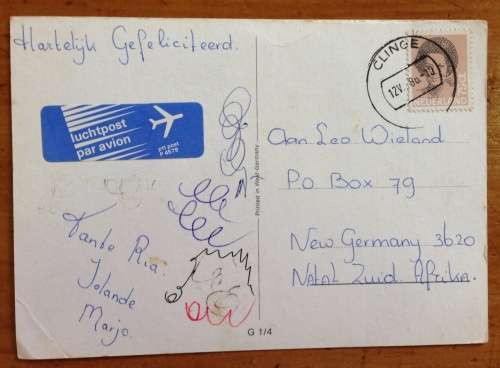 Hartelijk Gefeliciteerd.
luchtpost
par avion
ptt post
P 4578
Tante Ria.
Jolande
Marjo.
G 1/4
Printed in West Germany
CLINGE
NEDERLAND
Aan Leo Wieland
P.O Box 79
New Germany 3620
Natal Zuid Afrika.